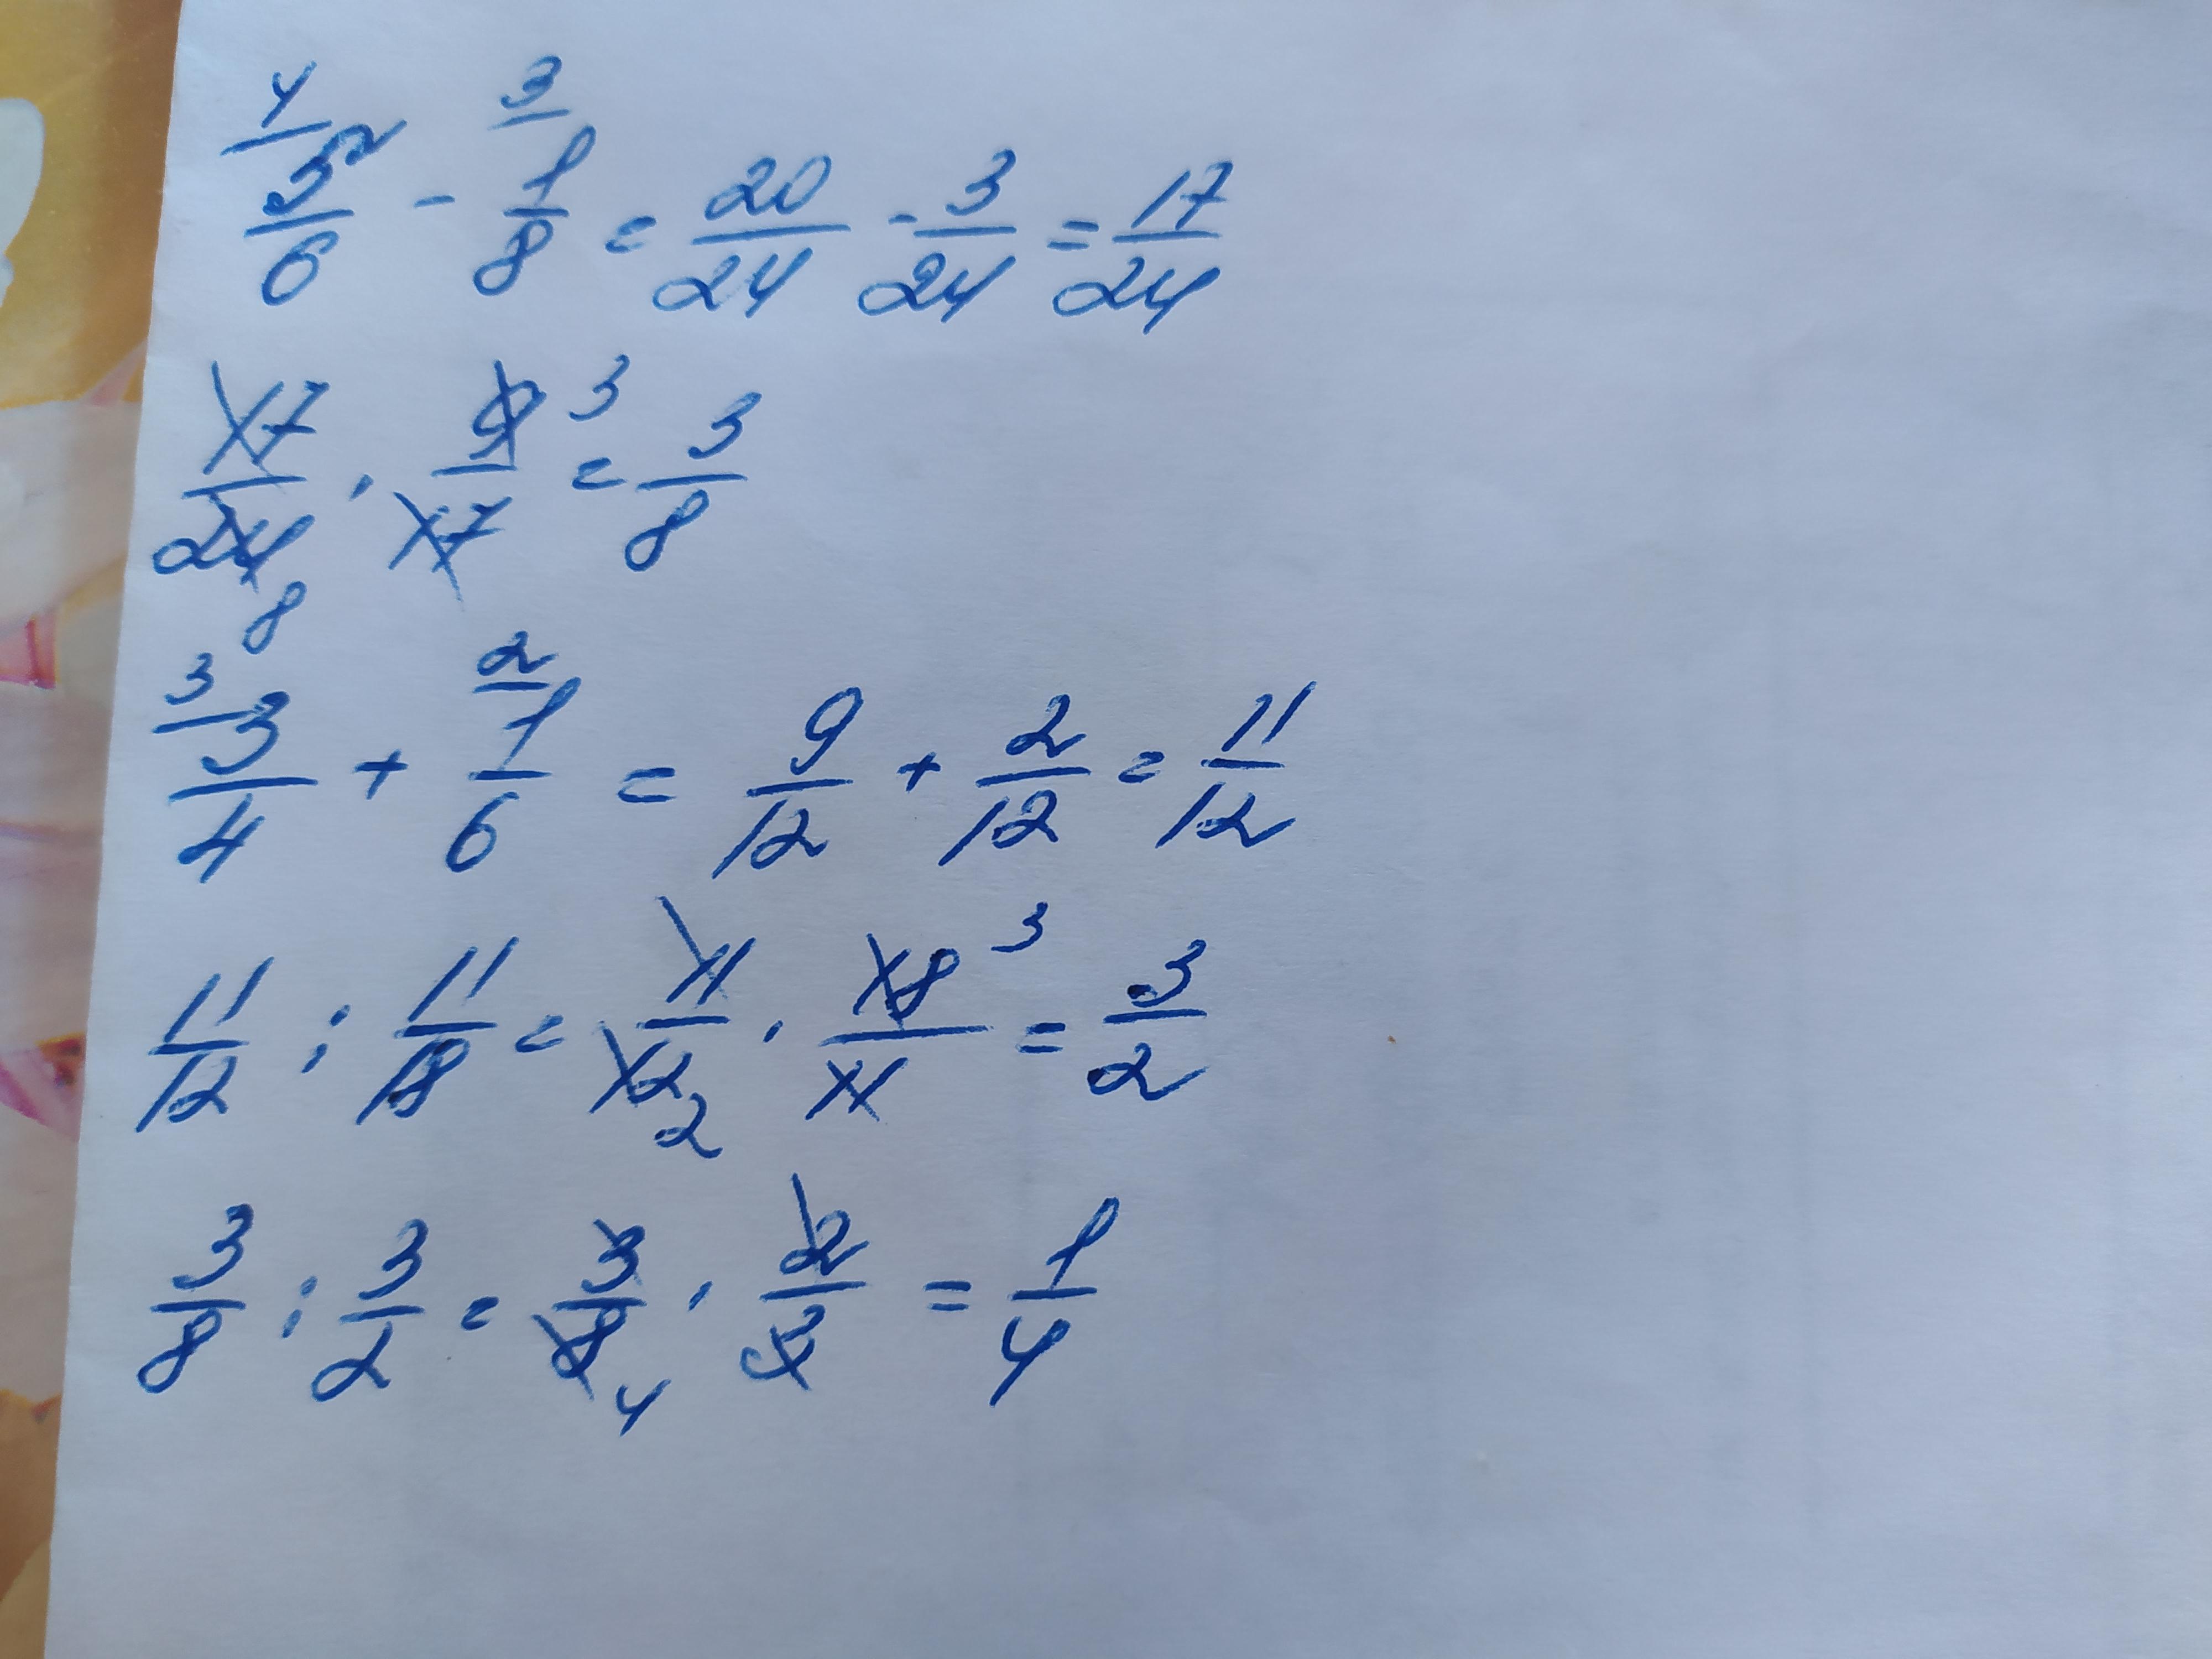 4/ 5/6 - 3/ 1/8 = 20/24 - 3/24 = 17/24
17/24 8 · 9/17 3 = 3/8
3/ 3/4 + 2/ 1/6 = 9/12 + 2/12 = 11/12
11/12 : 11/18 = 11/12 2 · 18/11 3 = 3/2
3/8 : 3/2 = 3/8 4 · 2/3 = 1/4